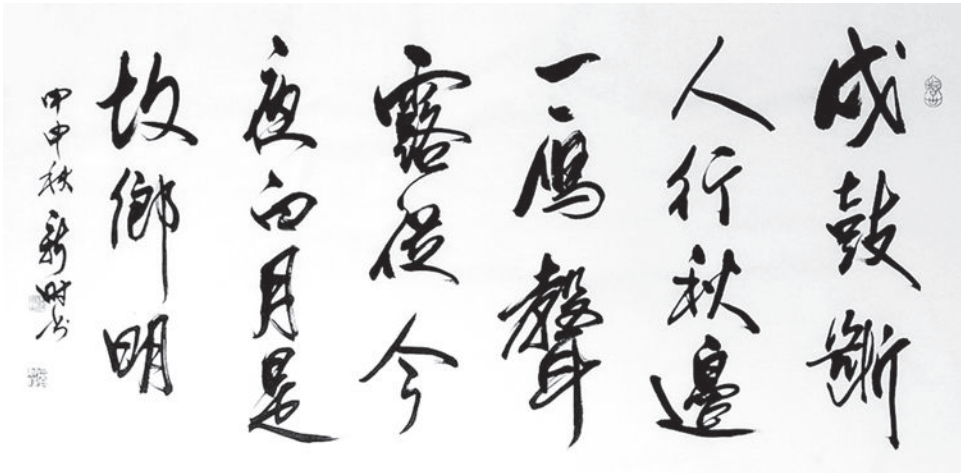 戍鼓斷
人行秋邊
一鴈聲
露從今
夜白月是
故鄉明
甲申秋新时书